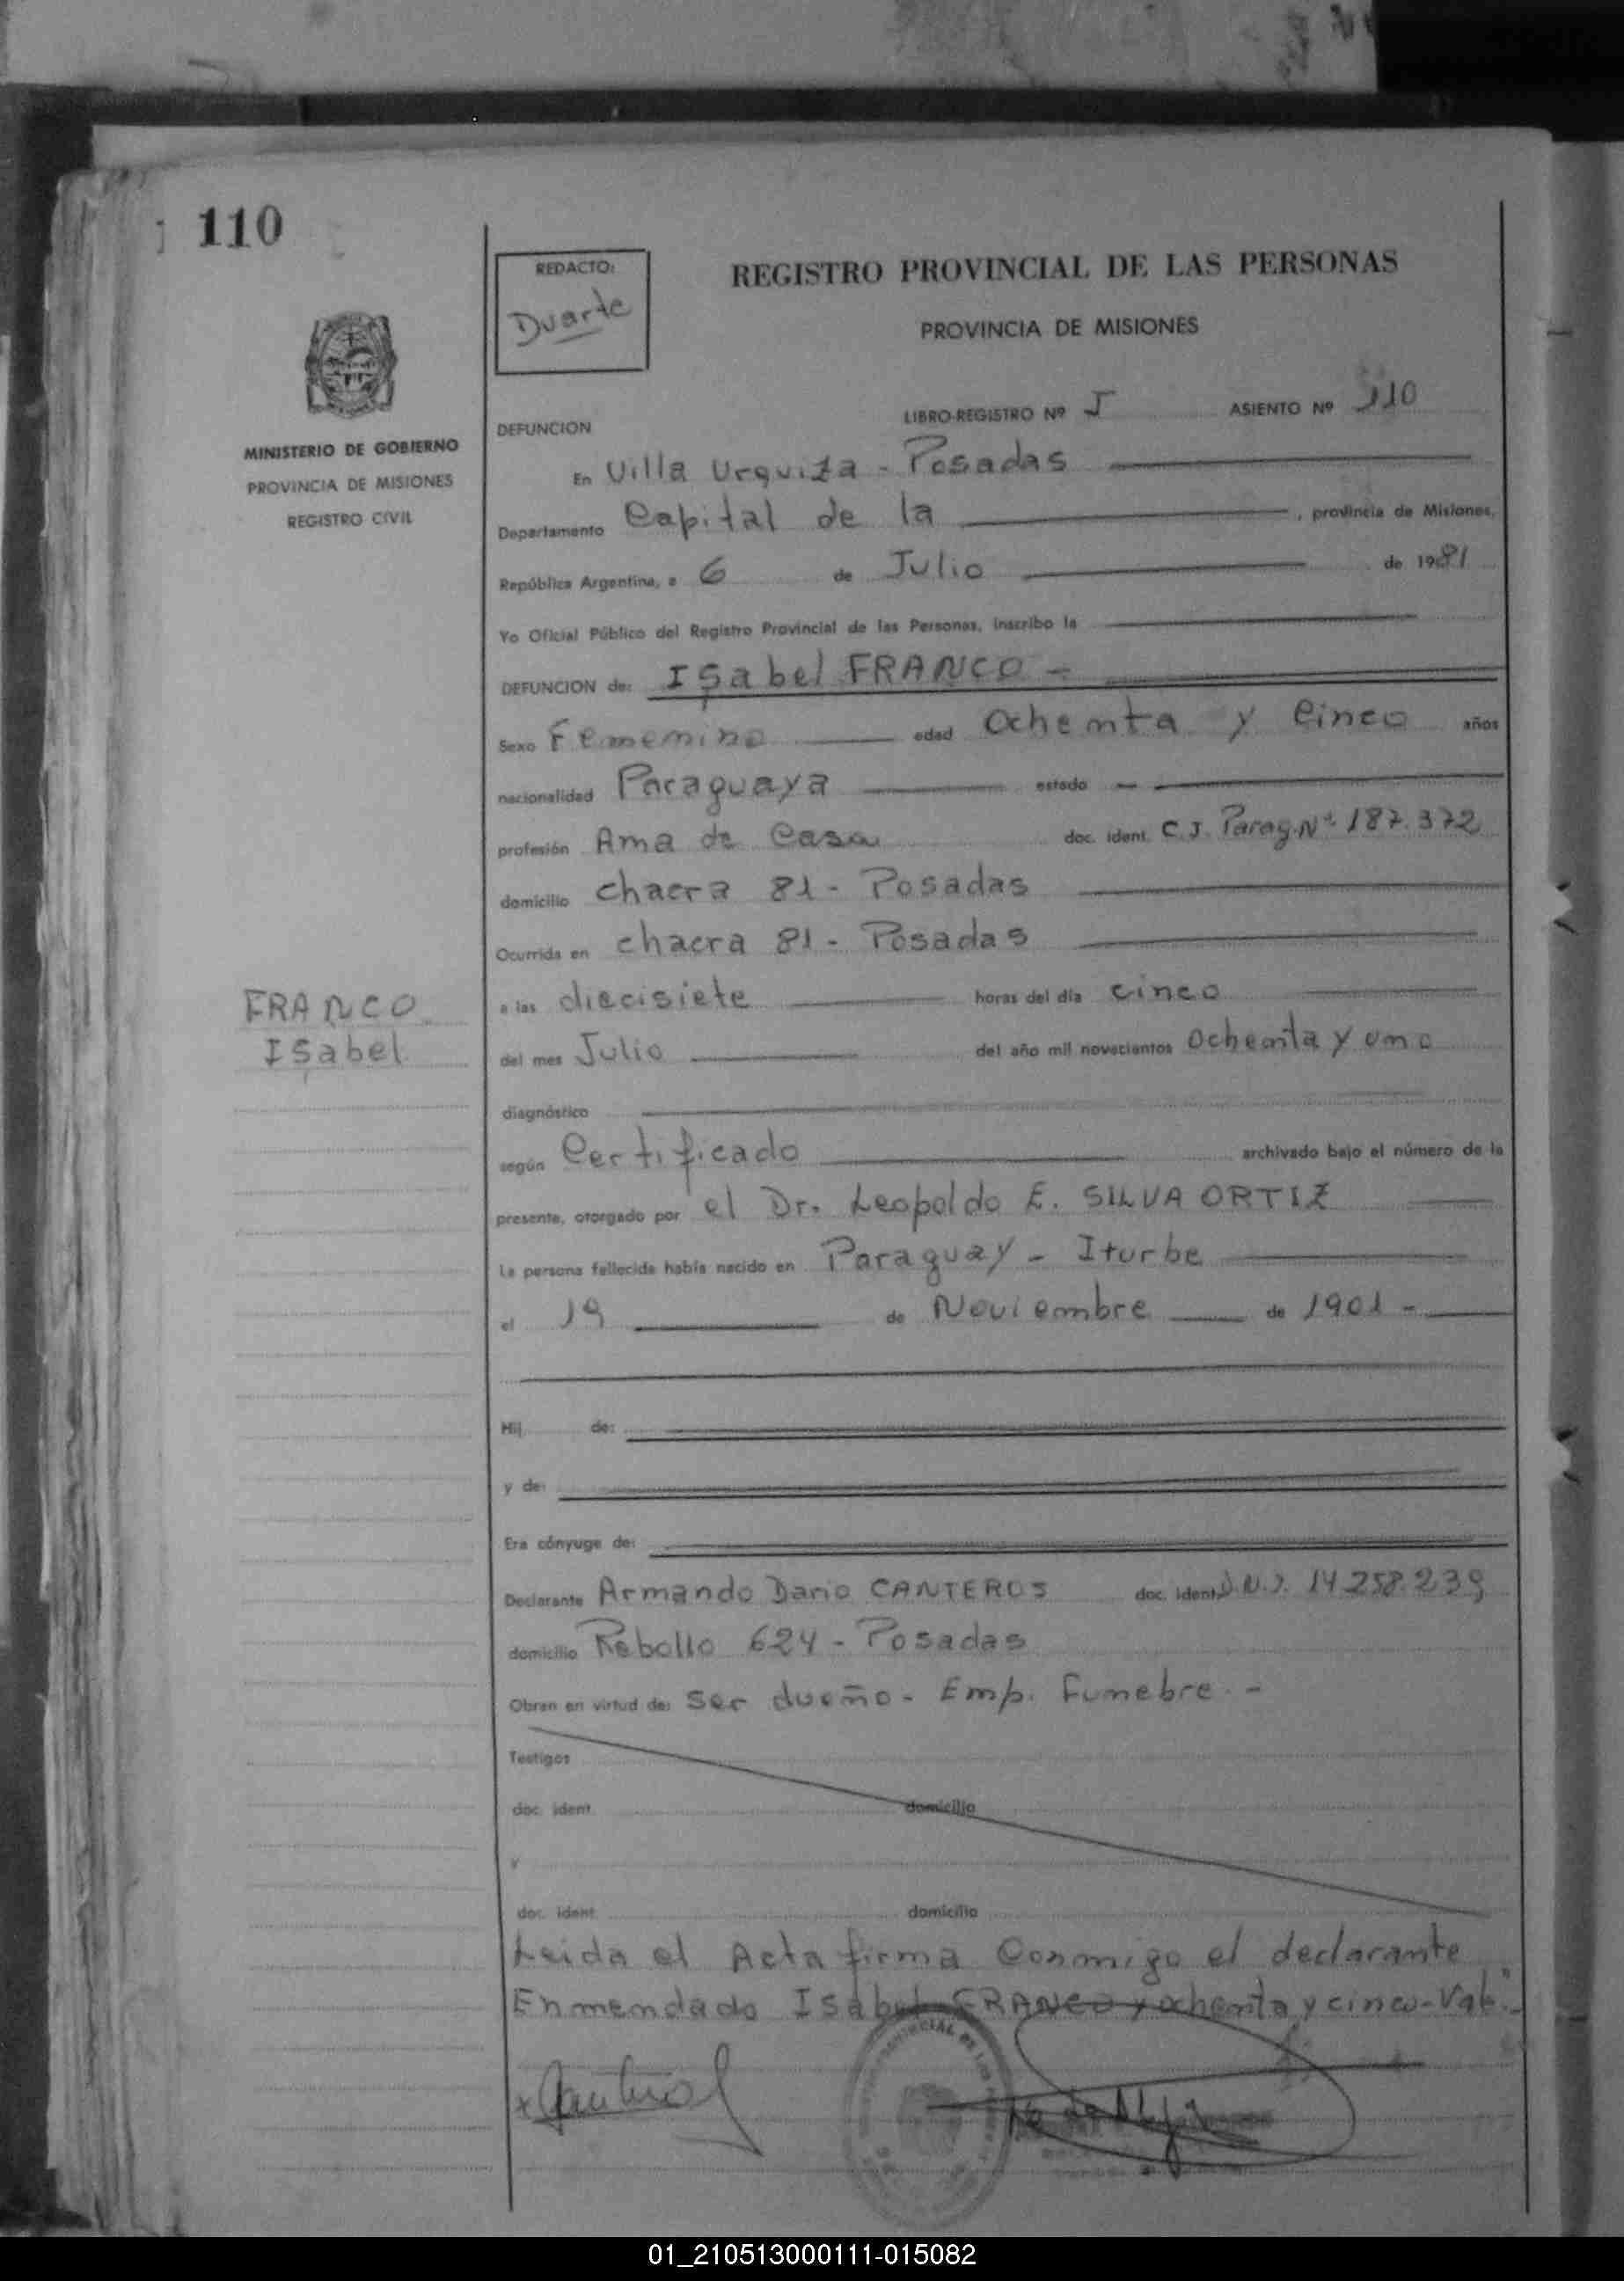 110
REDACTO:
Duarte
REGISTRO PROVINCIAL DE LAS PERSONAS
PROVINCIA DE MISIONES
MINISTERIO DE GOBIERNO
PROVINCIA DE MISIONES
REGISTRO CIVIL
LIBRO-REGISTRO Nº I ASIENTO Nº 110
DEFUNCION
En Villa Urquiza - Posadas
Departamento Capital de la , provincia de Misiones,
República Argentina, a 6 de Julio de 1981
Yo Oficial Público del Registro Provincial de las Personas, inscribo la
DEFUNCION de: Isabel FRANCO -
Sexo Femenino edad Ochenta y Cinco años
nacionalidad Paraguaya estado -
profesión Ama de Casa doc. ident. C.I. Parag. Nº 187.372
domicilio chacra 81 - Posadas
Ocurrida en chacra 81 - Posadas
a las diecisiete horas del día cinco
FRANCO
Isabel
del mes Julio del año mil novecientos Ochenta y uno
diagnóstico
según Certificado archivado bajo el número de la
presente, otorgado por el Dr. Leopoldo E. SILVA ORTIZ
La persona fallecida había nacido en Paraguay - Iturbe
el 19 de Noviembre de 1901 -
Hij de:
y de:
Era cónyuge de:
Declarante Armando Dario CANTEROS doc. ident. D.N.I. 14.258.239
domicilio Rebollo 624 - Posadas
Obran en virtud de: Ser dueño - Emp. Funebre. -
Testigos
doc. ident. domicilio
y
doc. ident. domicilio
Leida el Acta firma Conmigo el declarante
Enmendado Isabel FRANCO y ochenta y cinco - Vale. -
01_210513000111-015082